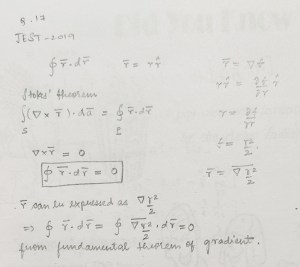 8.17
JEST-2019
∮ r̄·dr̄   r̄ = r r̂   r̄ = ∇f
r r̂ = ∂f/∂r r̂
Stokes' theorem
∫(∇×r̄)·dā = ∮ r̄·dr̄   r = ∂f/∂r
S
f = r²/2.
∇×r̄ = 0
∮ r̄·dr̄ = 0   r̄ = ∇r²/2
r̄ can be expressed as ∇r²/2
⇒ ∮ r̄·dr̄ = ∮ ∇r²/2·dr̄ = 0
from fundamental theorem of gradient.